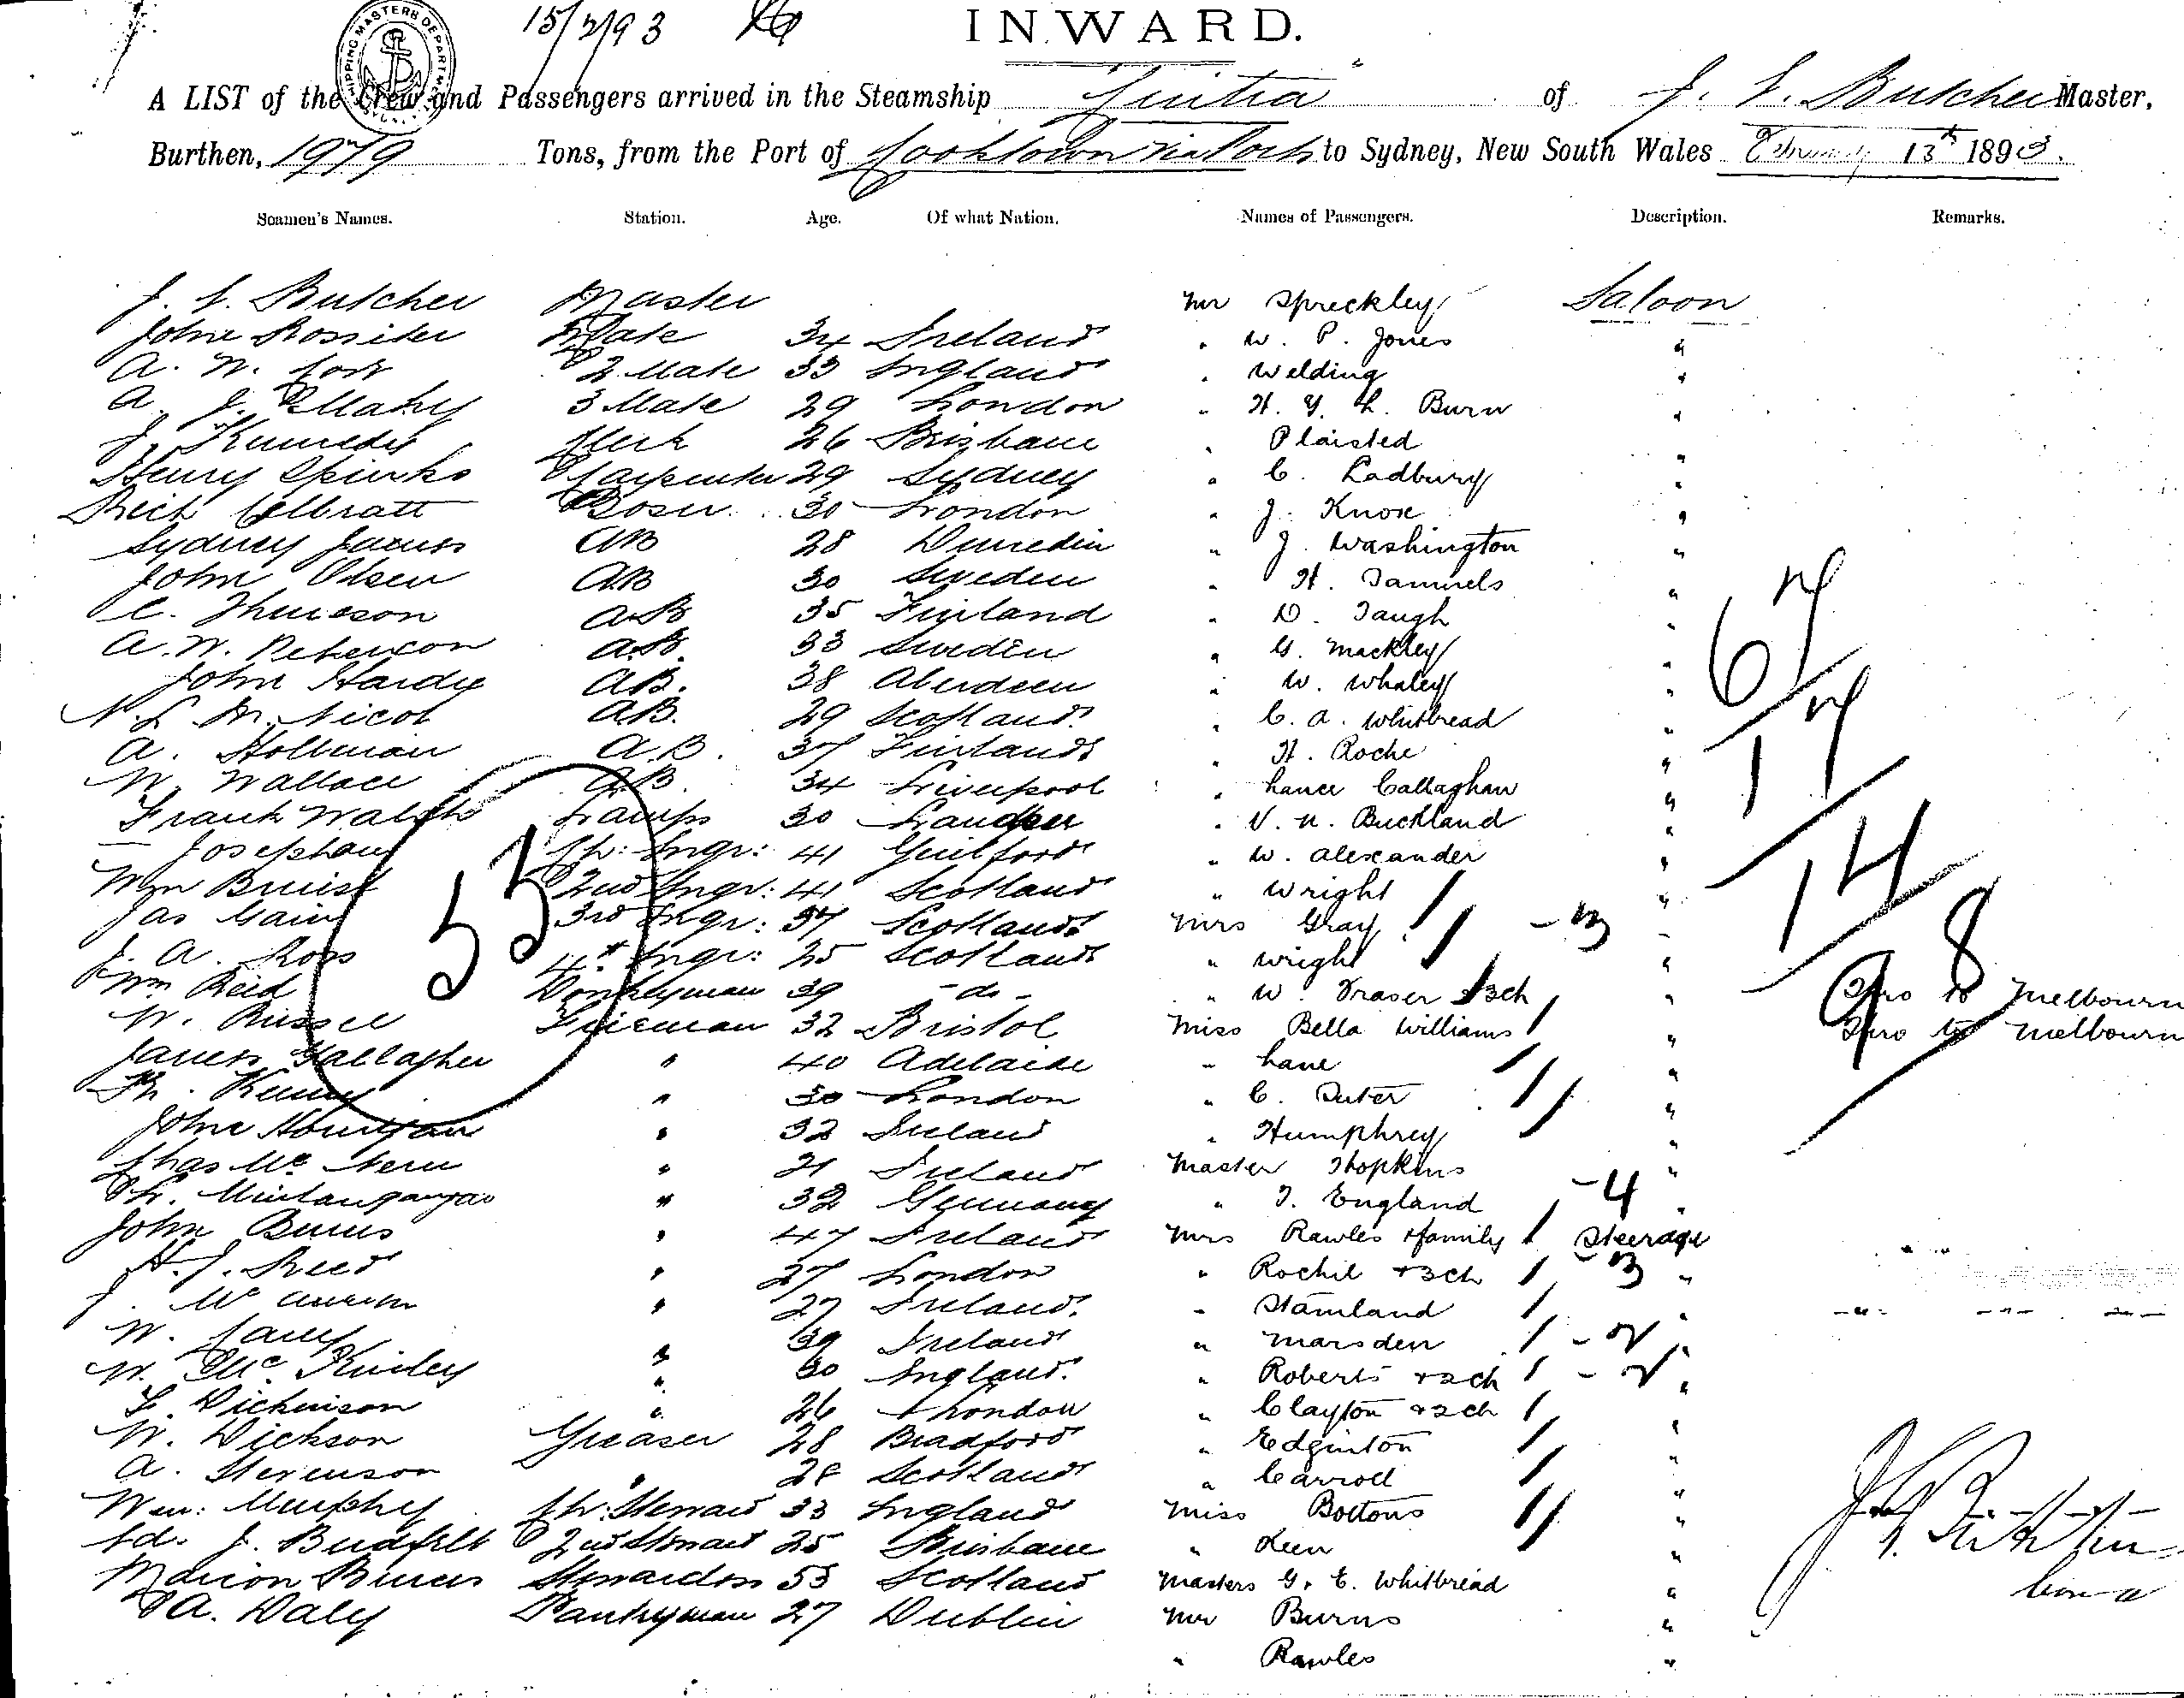 15/2/93
INWARD.
SHIPPING MASTERS DEPARTMENT
A LIST of the Crew and Passengers arrived in the Steamship "Cintra" of J. S. Butcher Master,
Burthen, 1979 Tons, from the Port of Cooktown via Ports to Sydney, New South Wales February 13th 1893.
Seamen's Names. Station. Age. Of what Nation. Names of Passengers. Description. Remarks.
J. S. Butcher Master Mr Spreckley Saloon
John Rossiter Mate 34 Ireland " W. P. Jones "
A. W. 2 Mate 33 England " Welding "
A. J. Mahy 3 Mate 29 London " H. Y. L. Burn "
J. Kennedy Clerk 26 Brisbane " Plaisted "
Henry Spinks Carpenter 29 Sydney " C. Ladbury "
Rich Colbratt Bosn. 30 London " J. Knox "
Sydney James AB 28 Dunedin " J. Washington "
John Olsen AB 30 Sweden " H. Samuels "
C. AB 35 Finland " D. Taugh "
A. W. Peterson AB. 33 Sweden " G. Mackley "
John Hardy AB. 38 Aberdeen " W. Whaley "
AB. 29 Scotland " C. A. Whitbread "
A. Holtman A.B. 37 Finland " H. Roche "
W. Wallace AB. 34 Liverpool " Lance Callaghan "
Frank Walsh Lamps 30 " V. N. Buckland "
Josephau Ch: Engr: 41 Guilford " W. Alexander "
Wm Buist 2nd Engr: 41 Scotland " Wright "
Jas Gain 3rd Engr: 37 Scotland Mrs Gray - 3 "
J. A. Ross 4th Engr: 25 Scotland " Wright "
Wm Reid Donkeyman 39 - do - " W. Fraser 3ch " Thro to Melbourn
W. Russel Fireman 32 Bristol Miss Bella Williams " Thro to Melbourn
James Gallagher " 40 Adelaide " Lane "
Kenny " 30 London " C. Suter "
John Hourigan " 32 Ireland " Humphrey "
Chas Mc " 21 Ireland Master Hopkins "
" 32 Germany " T. England - 4 "
John Burns " 47 Ireland Mrs Rawles & family Steerage
H. J. Reed " 27 London " Rochil + 3ch - 3 "
J. Mc " 27 Ireland. " Stamland "
W. " 39 Ireland " Marsden - 2 "
W. Mc Kinley " 30 England. " Roberts + 2ch - 2 "
Dickinson " 26 London " Clayton + 2ch "
W. Dickson Greaser 28 Bradford " Edginton "
A. Stevenson " 28 Scotland " Carroll "
Wm: Murphy Ch: Steward 33 England Miss Bottons "
Ed. J. 2nd Steward 25 Brisbane " Keen "
Marion Burns Stewardess 53 Scotland Masters G. E. Whitbread "
A. Daly Pantryman 27 Dublin Mr Burns "
" Rawles "
53
67
17
14
98